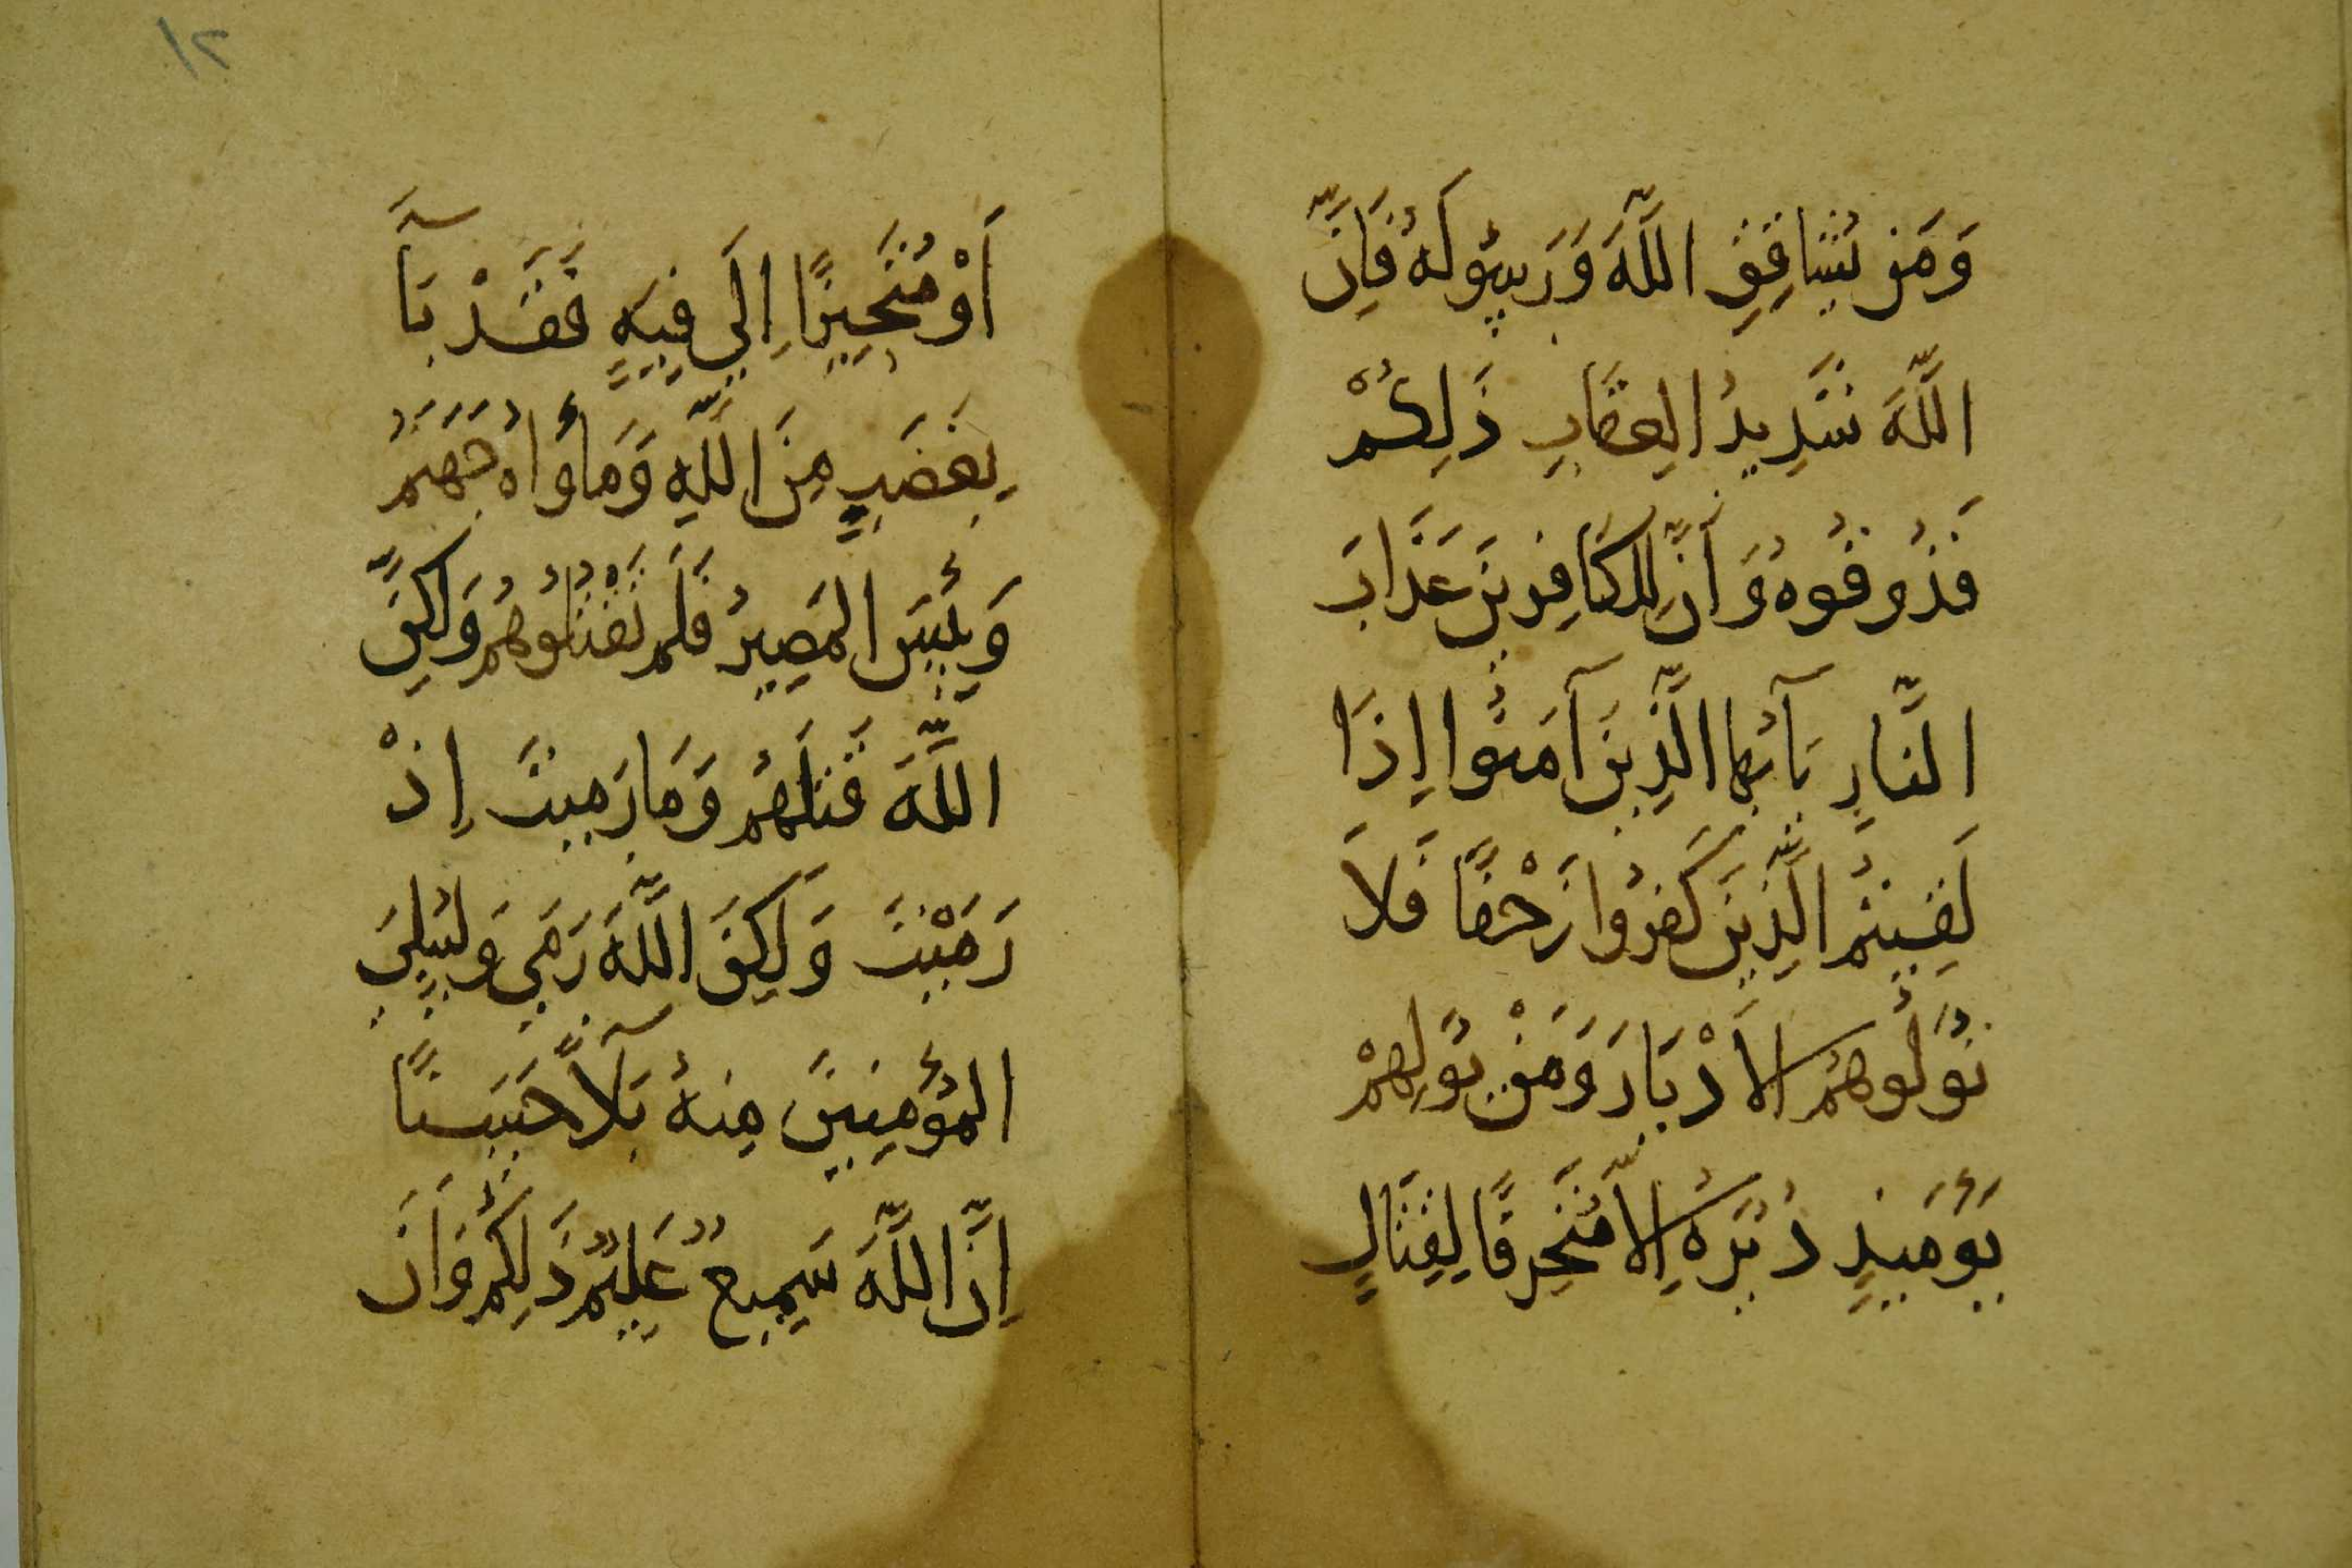 وَمَن يُشَاقِقِ اللَّهَ وَرَسُولَهُ فَاِنَّ
اللَّهَ شَدِيدُ العِقَابِ ذَلِكُمْ
فَذُوقُوهُ وَأَنَّ لِلكَافِرِينَ عَذَابَ
النَّارِ يَآ اَيُّهَا الَّذِينَ آمَنُوا إِذَا
لَقِيتُمُ الَّذِينَ كَفَرُوا زَحْفًا فَلَا
تُوَلُّوهُمُ الأَدْبَارَ وَمَنْ يُوَلِهِمْ
يَوْمَئِذٍ دُبُرَهُ إِلاَّ مُتَحَرِفًا لِقِتَالٍ
١٢
اَوْ مُتَحَيِزًا إِلَى فِيَةٍ فَقَدْ بَآ
بِغَضَبٍ مِنَ اللَّهِ وَمَأوَاهُ جَهَنَمُ
وَبِئسَ المَصِيرُ فَلَم تَقْتُلُوهُم وَلَكِنَّ
اللَّهَ قَتَلَهُم وَمَا رَمَيتَ إِذْ
رَمَيْتَ وَلَكِنَ اللَّهَ رَمَى وَلِيُبلِيَ
المُؤمِنِينَ مِنهُ بَلآً حَسَنًا
اِنَّ اللَّهَ سَمِيعٌ عَلِيمٌ ذَلِكُم وَاَن